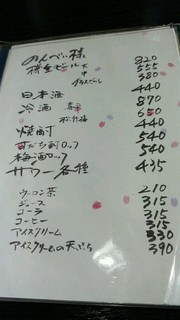 のんべい様
樽生ビール 大 820
中 555
グラスビール 380
日本酒 440
冷酒 870
松竹梅 650
焼酎 440
すだち酎ロック 540
梅酒ロック 540
サワー各種 435
ウーロン茶 210
ジュース 315
コーラ 315
コーヒー 315
アイスクリーム 330
アイスクリームの天ぷら 390